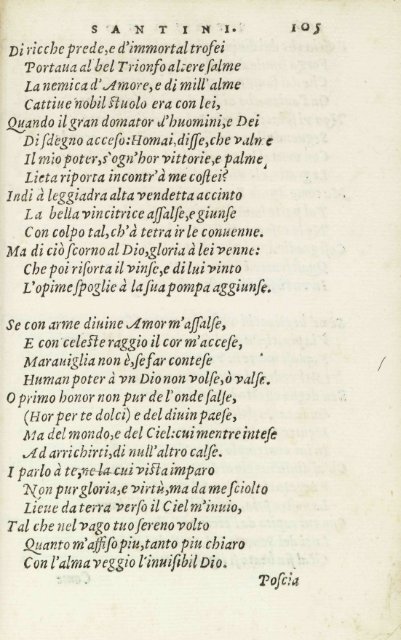 SANTINI. 105
Di ricche prede, e d'immortal trofei
Portaua al bel Trionfo altere salme
La nemica d'Amore, e di mill'alme
Cattiue nobil stuolo era con lei,
Quando il gran domator d'huomini, e Dei
Di sdegno acceso: Homai, disse, che valme
Il mio poter, s'ogn'hor vittorie, e palme
Lieta riporta incontr'à me costei?
Indi à leggiadra alta vendetta accinto
La bella vincitrice assalse, e giunse
Con colpo tal, ch'à tetra ir le conuenne.
Ma di ciò scorno al Dio, gloria à lei venne:
Che poi risorta il vinse, e di lui vinto
L'opime spoglie à la sua pompa aggiunse.
Se con arme diuine Amor m'assalse,
E con celeste raggio il cor m'accese,
Marauiglia non è, se far contese
Human poter à vn Dio non volse, ò valse.
O primo honor non pur de l'onde salse,
(Hor per te dolci) e del diuin paese,
Ma del mondo, e del Ciel: cui mentre intese
Ad arrichirti, di null'altro calse.
I parlo à te, ne la cui vista imparo
Non pur gloria, e virtù, ma da me sciolto
Lieue da terra verso il Ciel m'inuio,
Tal che nel vago tuo sereno volto
Quanto m'affiso piu, tanto piu chiaro
Con l'alma veggio l'inuisibil Dio.
Poscia